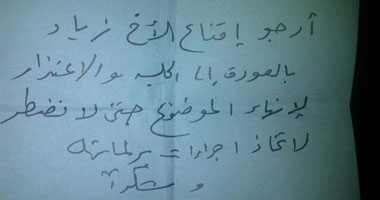 أرجو إقناع الأخ زياد
بالعودة إلى الجلسة والاعتذار
لإنهاء الموضوع حتى لا نضطر
لاتخاذ اجراءات برلمانية
وشكراً